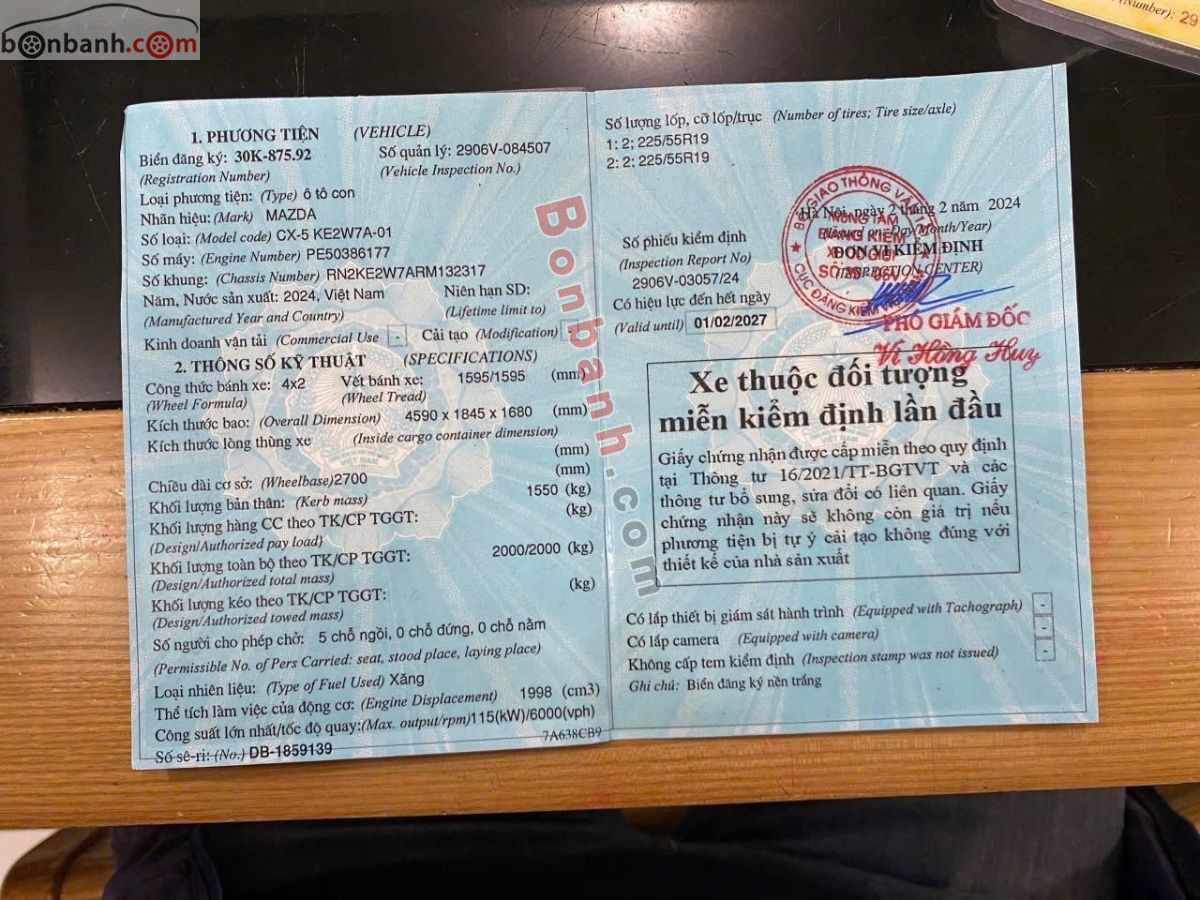 bonbanh.com
(Number): 29
1. PHƯƠNG TIỆN (VEHICLE)
Biển đăng ký: 30K-875.92 Số quản lý: 2906V-084507
(Registration Number) (Vehicle Inspection No.)
Loại phương tiện: (Type) ô tô con
Nhãn hiệu: (Mark) MAZDA
Số loại: (Model code) CX-5 KE2W7A-01
Số máy: (Engine Number) PE50386177
Số khung: (Chassis Number) RN2KE2W7ARM132317
Năm, Nước sản xuất: 2024, Việt Nam Niên hạn SD:
(Manufactured Year and Country) (Lifetime limit to)
Kinh doanh vận tải (Commercial Use - Cải tạo (Modification) -
2. THÔNG SỐ KỸ THUẬT (SPECIFICATIONS)
Công thức bánh xe: 4x2 Vết bánh xe: 1595/1595 (mm)
(Wheel Formula) (Wheel Tread)
Kích thước bao: (Overall Dimension) 4590 x 1845 x 1680 (mm)
Kích thước lòng thùng xe (Inside cargo container dimension)
(mm)
Chiều dài cơ sở: (Wheelbase) 2700 (mm)
Khối lượng bản thân: (Kerb mass) 1550 (kg)
Khối lượng hàng CC theo TK/CP TGGT: (kg)
(Design/Authorized pay load)
Khối lượng toàn bộ theo TK/CP TGGT: 2000/2000 (kg)
(Design/Authorized total mass)
Khối lượng kéo theo TK/CP TGGT: (kg)
(Design/Authorized towed mass)
Số người cho phép chở: 5 chỗ ngồi, 0 chỗ đứng, 0 chỗ nằm
(Permissible No. of Pers Carried: seat, stood place, laying place)
Loại nhiên liệu: (Type of Fuel Used) Xăng
Thể tích làm việc của động cơ: (Engine Displacement) 1998 (cm3)
Công suất lớn nhất/tốc độ quay:(Max. output/rpm)115(kW)/6000(vph)
7A638CB9
Số sê-ri: (No.) DB-1859139
Số lượng lốp, cỡ lốp/trục (Number of tires; Tire size/axle)
1: 2; 225/55R19
2: 2; 225/55R19
Hà Nội, ngày 2 tháng 2 năm 2024
(Issued on: Day/Month/Year)
ĐƠN VỊ KIỂM ĐỊNH
(INSPECTION CENTER)
BỘ GIAO THÔNG VẬN TẢI
TRUNG TÂM
ĐĂNG KIỂM
XE CƠ GIỚI
CỤC ĐĂNG KIỂM
Số phiếu kiểm định
(Inspection Report No)
2906V-03057/24
Có hiệu lực đến hết ngày
(Valid until) 01/02/2027
PHÓ GIÁM ĐỐC
Vi Hồng Huy
Xe thuộc đối tượng
miễn kiểm định lần đầu
Giấy chứng nhận được cấp miễn theo quy định
tại Thông tư 16/2021/TT-BGTVT và các
thông tư bổ sung, sửa đổi có liên quan. Giấy
chứng nhận này sẽ không còn giá trị nếu
phương tiện bị tự ý cải tạo không đúng với
thiết kế của nhà sản xuất
Có lắp thiết bị giám sát hành trình (Equipped with Tachograph) -
Có lắp camera (Equipped with camera) -
Không cấp tem kiểm định (Inspection stamp was not issued) -
Ghi chú: Biển đăng ký nền trắng
Bonbanh.com